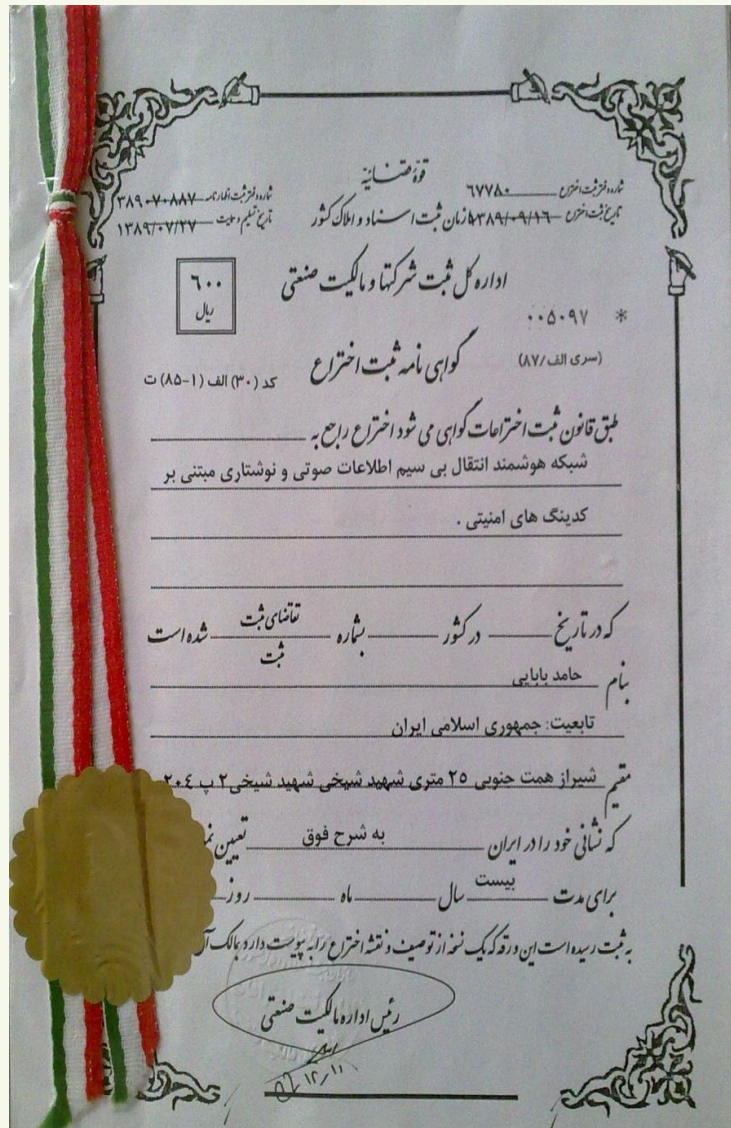 قوه قضائیه
شماره دفتر ثبت اختراع ٦٧٧٨٠
شماره دفتر ثبت اظهارنامه ٣٨٩٠٧٠٨٨٧
تاریخ ثبت اختراع ١٣٨٩/٠٩/١٦
سازمان ثبت اسناد و املاک کشور
تاریخ تسلیم ١٣٨٩/٠٧/٢٧
اداره کل ثبت شرکتها و مالکیت صنعتی
٦٠٠
ریال
* ٠٠٥٠٩٧
(سری الف/٨٧)
گواهی نامه ثبت اختراع
کد (٣٠) الف (١-٨٥) ت
طبق قانون ثبت اختراعات گواهی می شود اختراع راجع به
شبکه هوشمند انتقال بی سیم اطلاعات صوتی و نوشتاری مبتنی بر
کدینگ های امنیتی .
که در تاریخ در کشور بشماره تقاضای ثبت ثبت شده است
بنام حامد بابایی
تابعیت: جمهوری اسلامی ایران
مقیم شیراز همت جنوبی ٢٥ متری شهید شیخی شهید شیخی٢ پ ٢٠٤
که نشانی خود را در ایران به شرح فوق تعیین
برای مدت بیست سال ماه روز
به ثبت رسیده است این ورقه که یک نسخه از توصیف و نقشه اختراع را به پیوست دارد بمالک
رئیس اداره مالکیت صنعتی